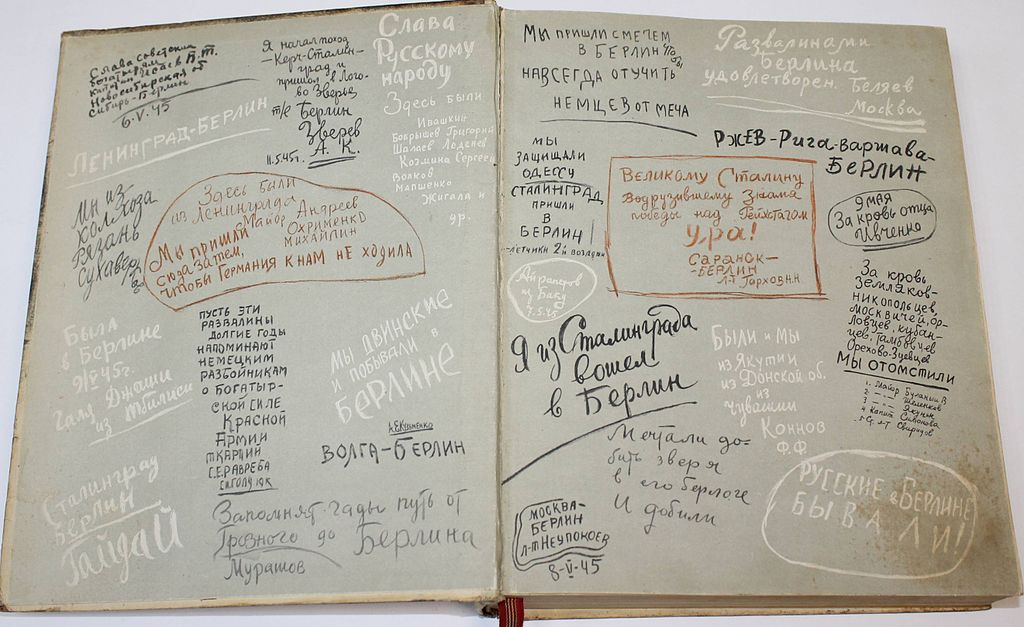 Слава советским
богатырям
Новосибирская об
Сибирь-Берлин
6.V.45
Я начал поход
-Керч-Сталин-
град и
пришол в Лого-
во Зверья,
т/е Берлин
Зверев
А. К.
11.5.45г.
Слава
Русскому
народу
Здесь были
Ивашкин
Бобрышев Григорий
Шалаев
Козмина Сергеец
Волков
Мапшенко
Жигала и
др.
ЛЕНИНГРАД-БЕРЛИН
Мы из
колхоза
Рязань
Здесь были
из Ленинграда
Майор Андреев
Охрименко
Михайлин
Мы пришли
сюда затем,
чтобы Германия к нам не ходила
Была
в Берлине
9/V 45г.
Галд Джаши
из Тбилиси
ПУСТЬ ЭТИ
РАЗВАЛИНЫ
ДОЛГИЕ ГОДЫ
НАПОМИНАЮТ
НЕМЕЦКИМ
РАЗБОЙНИКАМ
О БОГАТЫР-
СКОЙ СИЛЕ
КРАСНОЙ
АРМИИ
МЫ ДВИНСКИЕ
И ПОБЫВАЛИ В
БЕРЛИНЕ
А.Е.Кузьменко
ВОЛГА-БЕРЛИН
Сталинград
Берлин
Гайдай
Запомнят гады путь от
Грозного до Берлина
Мурашов
Мы пришли с мечем
в Берлин
НАВСЕГДА ОТУЧИТЬ
НЕМЦЕВ ОТ МЕЧА
Развалинами
Берлина
удовлетворен. Беляев
Москва
МЫ
ЗАЩИЩАЛИ
ОДЕССУ
СТАЛИНГРАД
ПРИШЛИ
В
БЕРЛИН!
-ЛЕТЧИКИ 2й
ВЕЛИКОМУ СТАЛИНУ
Водрузившему Знамя
победы над Рейхстагом
УРА!
САРАНСК-
-БЕРЛИН
РЖЕВ-РИГА-ВАРШАВА-
БЕРЛИН
9 МАЯ
За кровь отца
Ивченко
из Баку
Я из Сталинграда
вошел
в Берлин
Были и мы
из Якутии
из Донской об.
из
Чувашии
Коннов
Ф.Ф.
За кровь
земляков-
никопольцев,
москвичей, ор-
ловцев, кубан-
цев, тамбовцев
Орехово-Зуевцев
МЫ ОТОМСТИЛИ
1. Майор
Мечтали до-
бить зверя
в его берлоге
И добили
МОСКВА-
БЕРЛИН
Л-Т НЕУПОКОЕВ
8-V-45
РУССКИЕ в БЕРЛИНЕ
БЫВАЛИ!